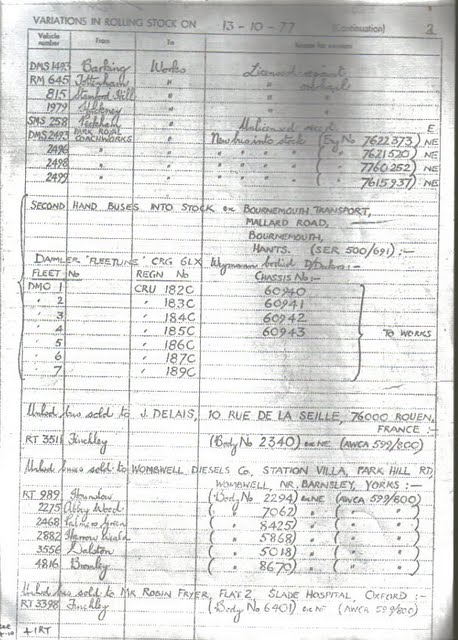 VARIATIONS IN ROLLING STOCK ON 13-10-77 (Continuation) 2
Vehicle number From To Reason for movement
DMS 1493 Barking Works Licensed repaint
RM 645 Tottenham " overhaul
815 Stamford Hill " "
1979 Hackney " "
SMS 258 Peckham " Unlicensed recert E
DMS 2493 PARK ROYAL COACHWORKS New bus into stock (Eng No 7622373) NE
2496 " " " " " ( " " 7621520) NE
2498 " " " " " ( " " 7760252) NE
2499 " " " " " ( " " 7615937) NE
SECOND HAND BUSES INTO STOCK ex BOURNEMOUTH TRANSPORT,
MALLARD ROAD,
BOURNEMOUTH,
HANTS. (SER 500/691) :-
DAIMLER 'FLEETLINE' CRG 6LX Weymann bodied D/Deckers :-
FLEET No REGN No CHASSIS No :-
DMO 1 CRU 182C 60940
" 2 " 183C 60941
" 3 " 184C 60942
" 4 " 185C 60943 TO WORKS
" 5 " 186C
" 6 " 187C
" 7 " 189C
Unlicd bus sold to J. DELAIS, 10 RUE DE LA SEILLE, 76000 ROUEN,
FRANCE :-
RT 3511 Finchley (Body No 2340) ex NE (AWCA 599/800)
Unlicd buses sold to WOMBWELL DIESELS Co, STATION VILLA, PARK HILL RD,
WOMBWELL, NR. BARNSLEY, YORKS :-
RT 989 Hounslow (Body No 2294) ex NE (AWCA 599/800)
2275 Abbey Wood ( " " 7062) " ( " " )
2468 Palmers Green ( " " 8425) " ( " " )
2882 Harrow Weald ( " " 5868) " ( " " )
3556 Dalston ( " " 5018) " ( " " )
4816 Bromley ( " " 8670) " ( " " )
Unlicd bus sold to MR ROBIN FRYER, FLAT 2, SLADE HOSPITAL, OXFORD :-
RT 3398 Finchley (Body No 6401) ex NE (AWCA 599/800)
+ 1RT